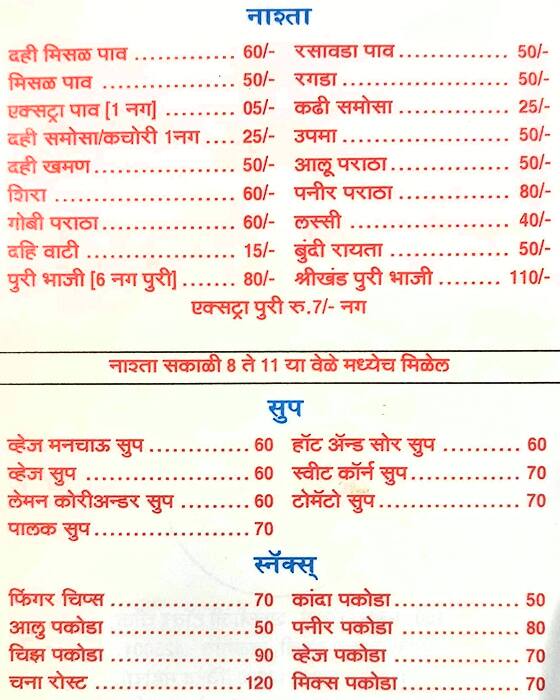 नाश्ता
दही मिसळ पाव .............. 60/- रसावडा पाव .............. 50/-
मिसळ पाव .................. 50/- रगडा ....................... 50/-
एक्सट्रा पाव [1 नग] ......... 05/- कढी समोसा ............... 25/-
दही समोसा/कचोरी 1नग .... 25/- उपमा ....................... 50/-
दही खमण ................... 50/- आलू पराठा ................ 50/-
शिरा ......................... 60/- पनीर पराठा ............... 80/-
गोबी पराठा .................. 60/- लस्सी ...................... 40/-
दहि वाटी ..................... 15/- बुंदी रायता ................. 50/-
पुरी भाजी [6 नग पुरी] ....... 80/- श्रीखंड पुरी भाजी ........ 110/-
एक्सट्रा पुरी रु.7/- नग
नाश्ता सकाळी 8 ते 11 या वेळे मध्येच मिळेल
सुप
व्हेज मनचाऊ सुप ............. 60 हॉट ॲन्ड सोर सुप ........... 60
व्हेज सुप ..................... 60 स्वीट कॉर्न सुप .............. 70
लेमन कोरीअन्डर सुप ......... 60 टोमॅटो सुप .................. 70
पालक सुप .................... 70
स्नॅक्स्
फिंगर चिप्स .................. 70 कांदा पकोडा ................ 50
आलु पकोडा .................. 50 पनीर पकोडा ................ 80
चिझ पकोडा .................. 90 व्हेज पकोडा ................. 70
चना रोस्ट .................... 120 मिक्स पकोडा ............... 70